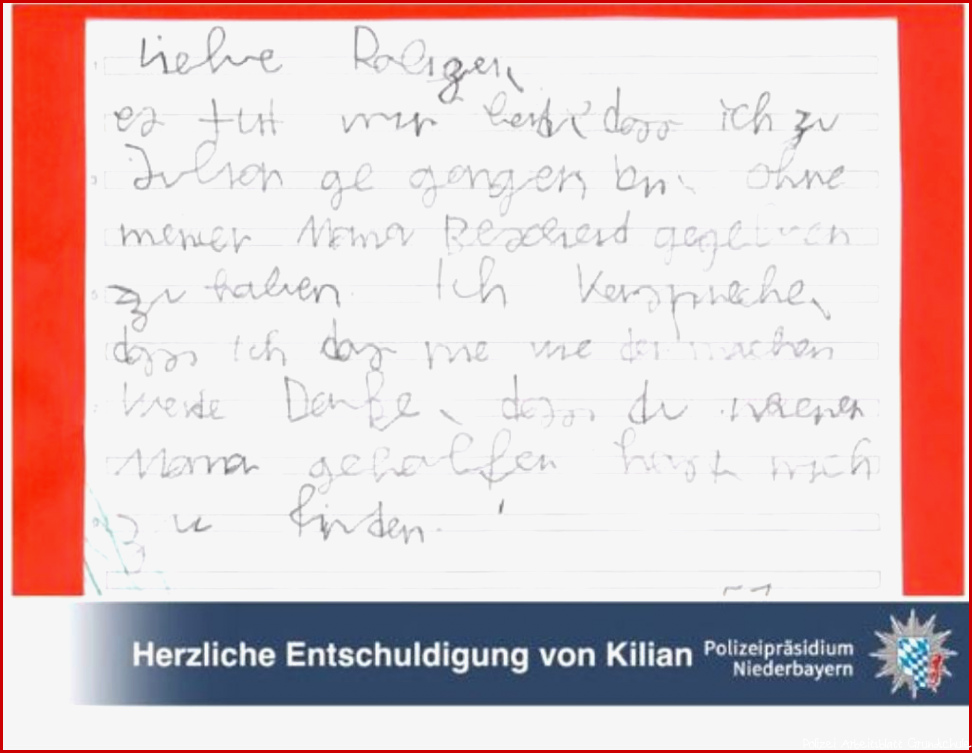 Liebe Polizei,
es tut mir leid, dass ich zu
Julian ge gangen bin. ohne
meiner Mama Bescheid gegeben
zu haben. Ich Verspreche,
dass ich das nie wie der machen
werde Danke, dass du meiner
Mama geholfen hast mich
zu finden.
Herzliche Entschuldigung von Kilian
Polizeipräsidium
Niederbayern